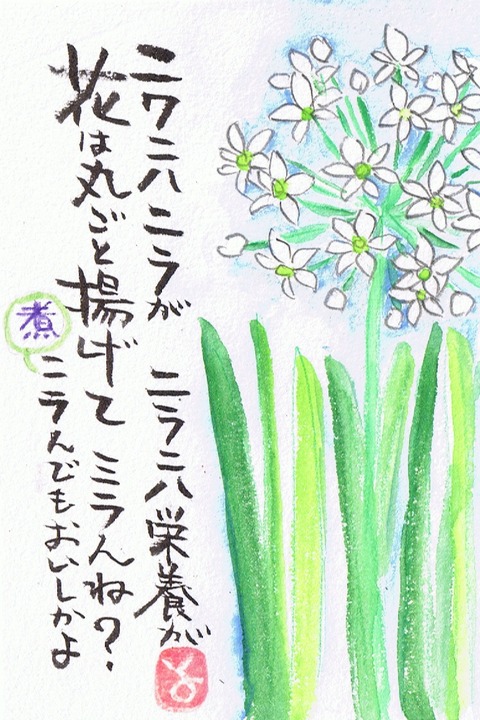 ニワニハニラが ニラニハ栄養が
花は丸ごと揚げて ミラんね?
煮ニラんでもおいしかよ